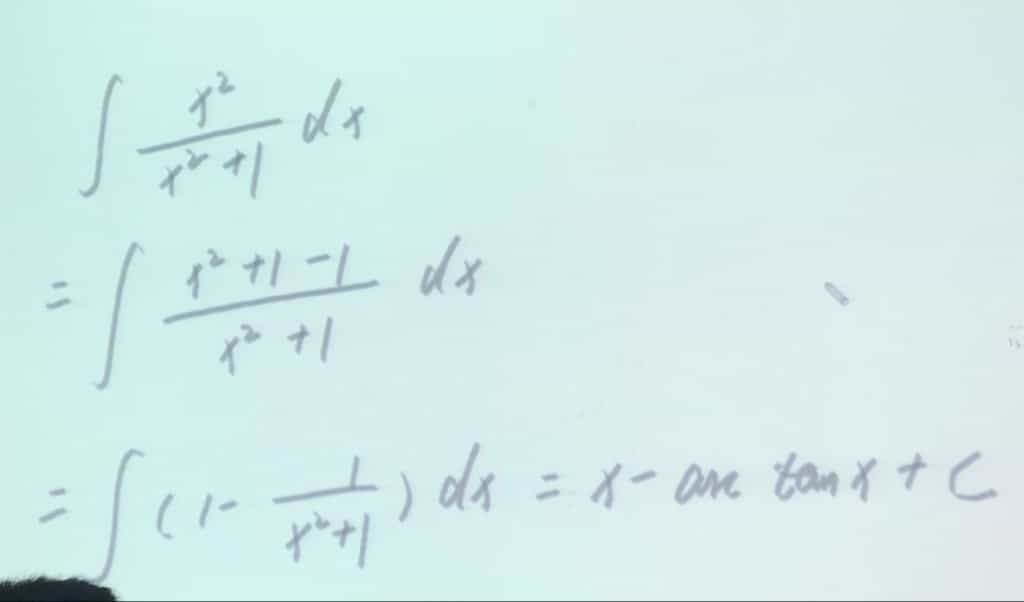 ∫ x²/(x²+1) dx
= ∫ (x²+1-1)/(x²+1) dx
= ∫ (1 - 1/(x²+1)) dx = x - arc tan x + C